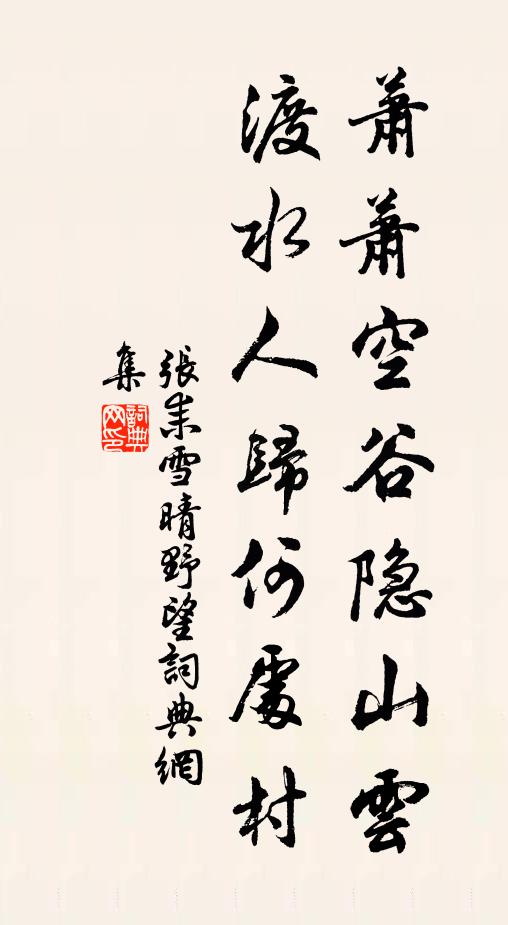 蕭蕭空谷隐山雲
渡水人歸何處村
張耒雪晴野望詞典網
集
詞典網印